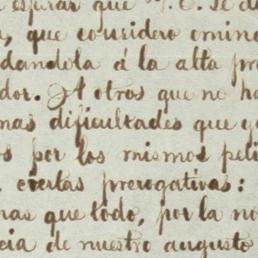 esperar que V. E. se d
, que considero omino
dandola á la alta pr
dor. A otros que no ha
mas dificultades que y
os por los mismos peli
. ciertas prerogativas:
mas que todo, por la no
cia de nuestro augusto